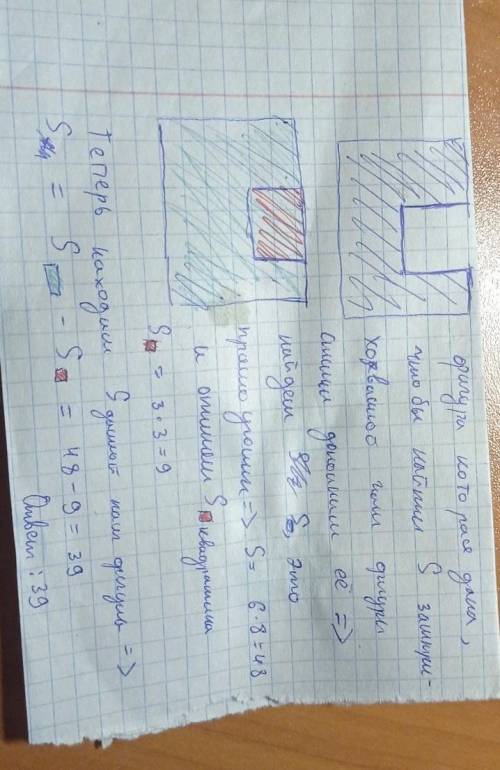 фигура которая дана,
чтобы найти S заштри-
хованной части фигуры
достроим её =>
найдём S, это
прямоугольник => S = 6·8=48
и отнимем S квадратика
S = 3·3=9
Теперь находим S данной нам фигуры =>
S = S - S = 48-9=39
Ответ: 39